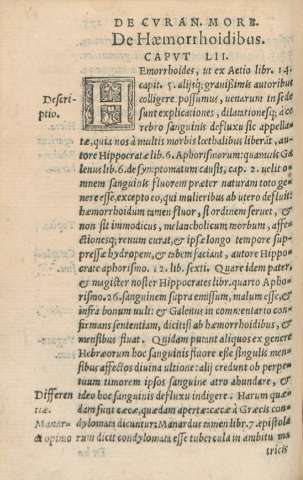 DE CVRAN. MORB.
De Hæmorrhoidibus.
CAPVT LII.
Descri-
ptio.
HEmorrhoides, ut ex Aetio libr. 14.
capit. 5. alijsq; grauißimis autoribus
colligere possumus, uenarum in sede
sunt explicationes, dilationesq;, à ce
rebro sanguinis defluxu sic appella-
tæ, quia nos à multis morbis lœthalibus liberāt, au-
tore Hippocrate lib. 6. Aphorismorum: quamuis Ga
lenus lib. 6. de symptomatum causis, cap. 2. uelit o-
mnem sanguinis fluorem præter naturam toto ge-
nere esse, excepto eo, qui mulieribus ab utero defluit:
hæmorrhoidum tamen fluor, si ordinem seruet, &
non sit immodicus, melancholicum morbum, affe-
ctionesq; renum curat, & ipsæ longo tempore sup-
pressæ hydropem, & tabem faciunt, autore Hippo-
crate aphorismo. 12. lib. sexti. Quare idem pater,
& magister noster Hippocrates libr. quarto Apho-
rismo. 26. sanguinem supra emissum, malum esse, &
infra bonum uult: & Galenus in commentario con-
firmans sententiam, dicit, si ab hæmorrhoidibus, &
mensibus fluat. Quidam putant aliquos ex genere
Hebræorum hoc sanguinis fluore esse singulis men-
sibus affectos diuina ultione: alij credunt ob perpe-
tuum timorem ipsos sanguine atro abundare, &
Differen
tiæ.
ideo hoc sanguinis defluxu indigere. Harum quæ-
dam sunt cæcæ, quædam apertæ: cæcæ à Græcis con-
Manar-
di opinio
dylomata dicuntur: Manardus tamen lib. 7. epistola
rum dicit condylomata esse tubercula in ambitu ma
tricis